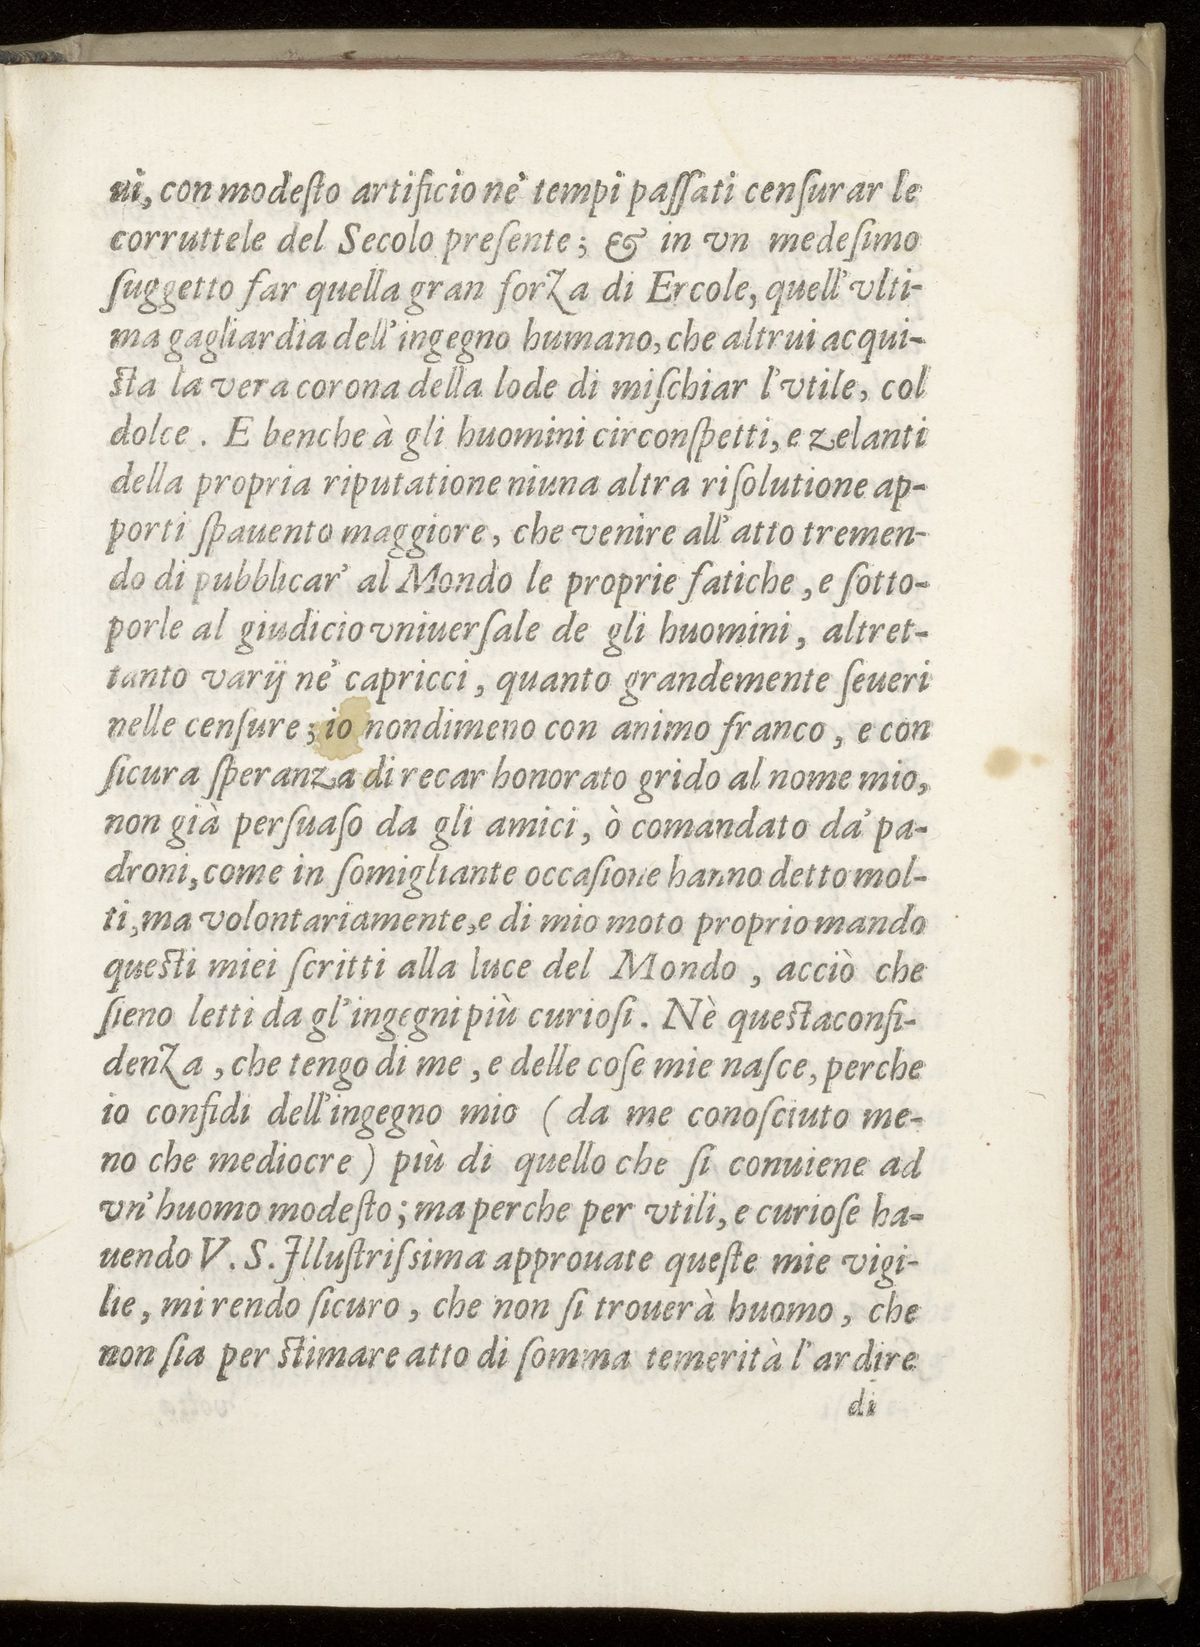 ui, con modeſto artificio ne' tempi paſſati cenſurar le
corruttele del Secolo preſente; & in vn medeſimo
ſuggetto far quella gran forza di Ercole, quell'vlti-
ma gagliardia dell'ingegno humano, che altrui acqui-
ſta la vera corona della lode di miſchiar l'vtile, col
dolce. E benche à gli huomini circonſpetti, e zelanti
della propria riputatione niuna altra riſolutione ap-
porti ſpauento maggiore, che venire all'atto tremen-
do di pubblicar' al Mondo le proprie fatiche, e ſotto-
porle al giudicio vniuerſale de gli huomini, altret-
tanto varij ne' capricci, quanto grandemente ſeueri
nelle cenſure; io nondimeno con animo franco, e con
ſicura ſperanza di recar honorato grido al nome mio,
non già perſuaſo da gli amici, ò comandato da' pa-
droni, come in ſomigliante occaſione hanno detto mol-
ti, ma volontariamente, e di mio moto proprio mando
queſti miei ſcritti alla luce del Mondo, acciò che
ſieno letti da gl'ingegni più curioſi. Nè queſta confi-
denza, che tengo di me, e delle coſe mie naſce, perche
io confidi dell'ingegno mio (da me conoſciuto me-
no che mediocre) più di quello che ſi conuiene ad
vn'huomo modeſto; ma perche per vtili, e curioſe ha-
uendo V. S. Illuſtriſsima approuate queſte mie vigi-
lie, mi rendo ſicuro, che non ſi trouerà huomo, che
non ſia per ſtimare atto di ſomma temerità l'ardire
di